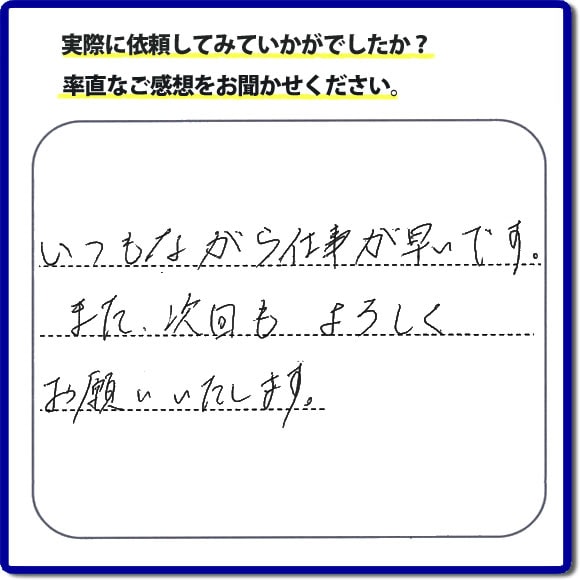 実際に依頼してみていかがでしたか？
率直なご感想をお聞かせください。
いつもながら仕事が早いです。
また、次回もよろしく
お願いいたします。